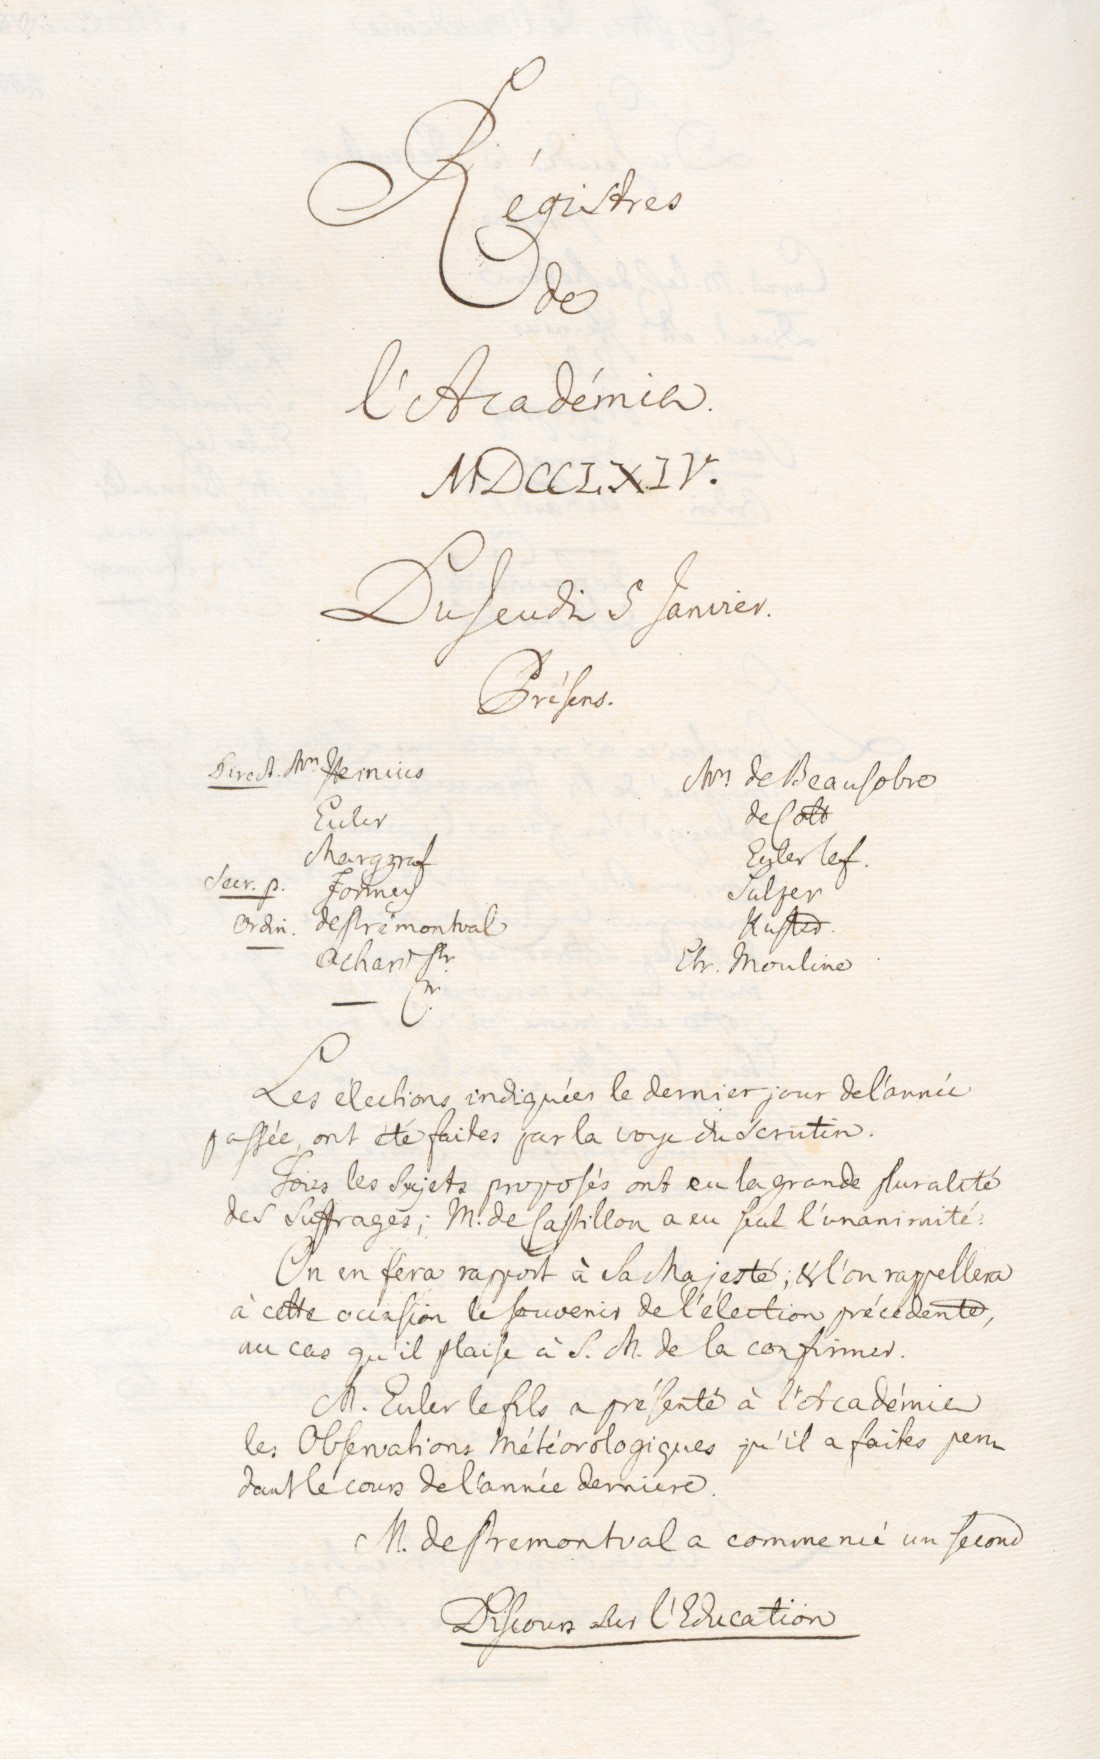 Régistres
de
l'Académie.
MDCCLXIV.
Du Jeudi 5 Janvier.
Présens.
Direct. Mrs Heinius
Euler
Marggraf
Secr. p. Formey
Ordin. de Prémontval
Achard Sr.
Mrs de Beausobre
de Catt
Euler le f.
Sulzer
Küster.
Etr. Mouline
Les élections indiquées le dernier jour de l'année
passée, ont été faites par la voye du Scrutin.
Tous les Sujets proposés ont eu la grande pluralité
des Suffrages; M. de Castillon a eu seul l'unanimité.
On en fera rapport à Sa Majesté; & l'on rappellera
à cette occasion le souvenir de l'élection précédente,
au cas qu'il plaise à S. M. de la confirmer.
M. Euler le fils a présenté à l'Académie
les Observations Météorologiques qu'il a faites pen
dant le cours de l'année derniere.
M. de Premontval a commencé un second
Discours sur l'Education